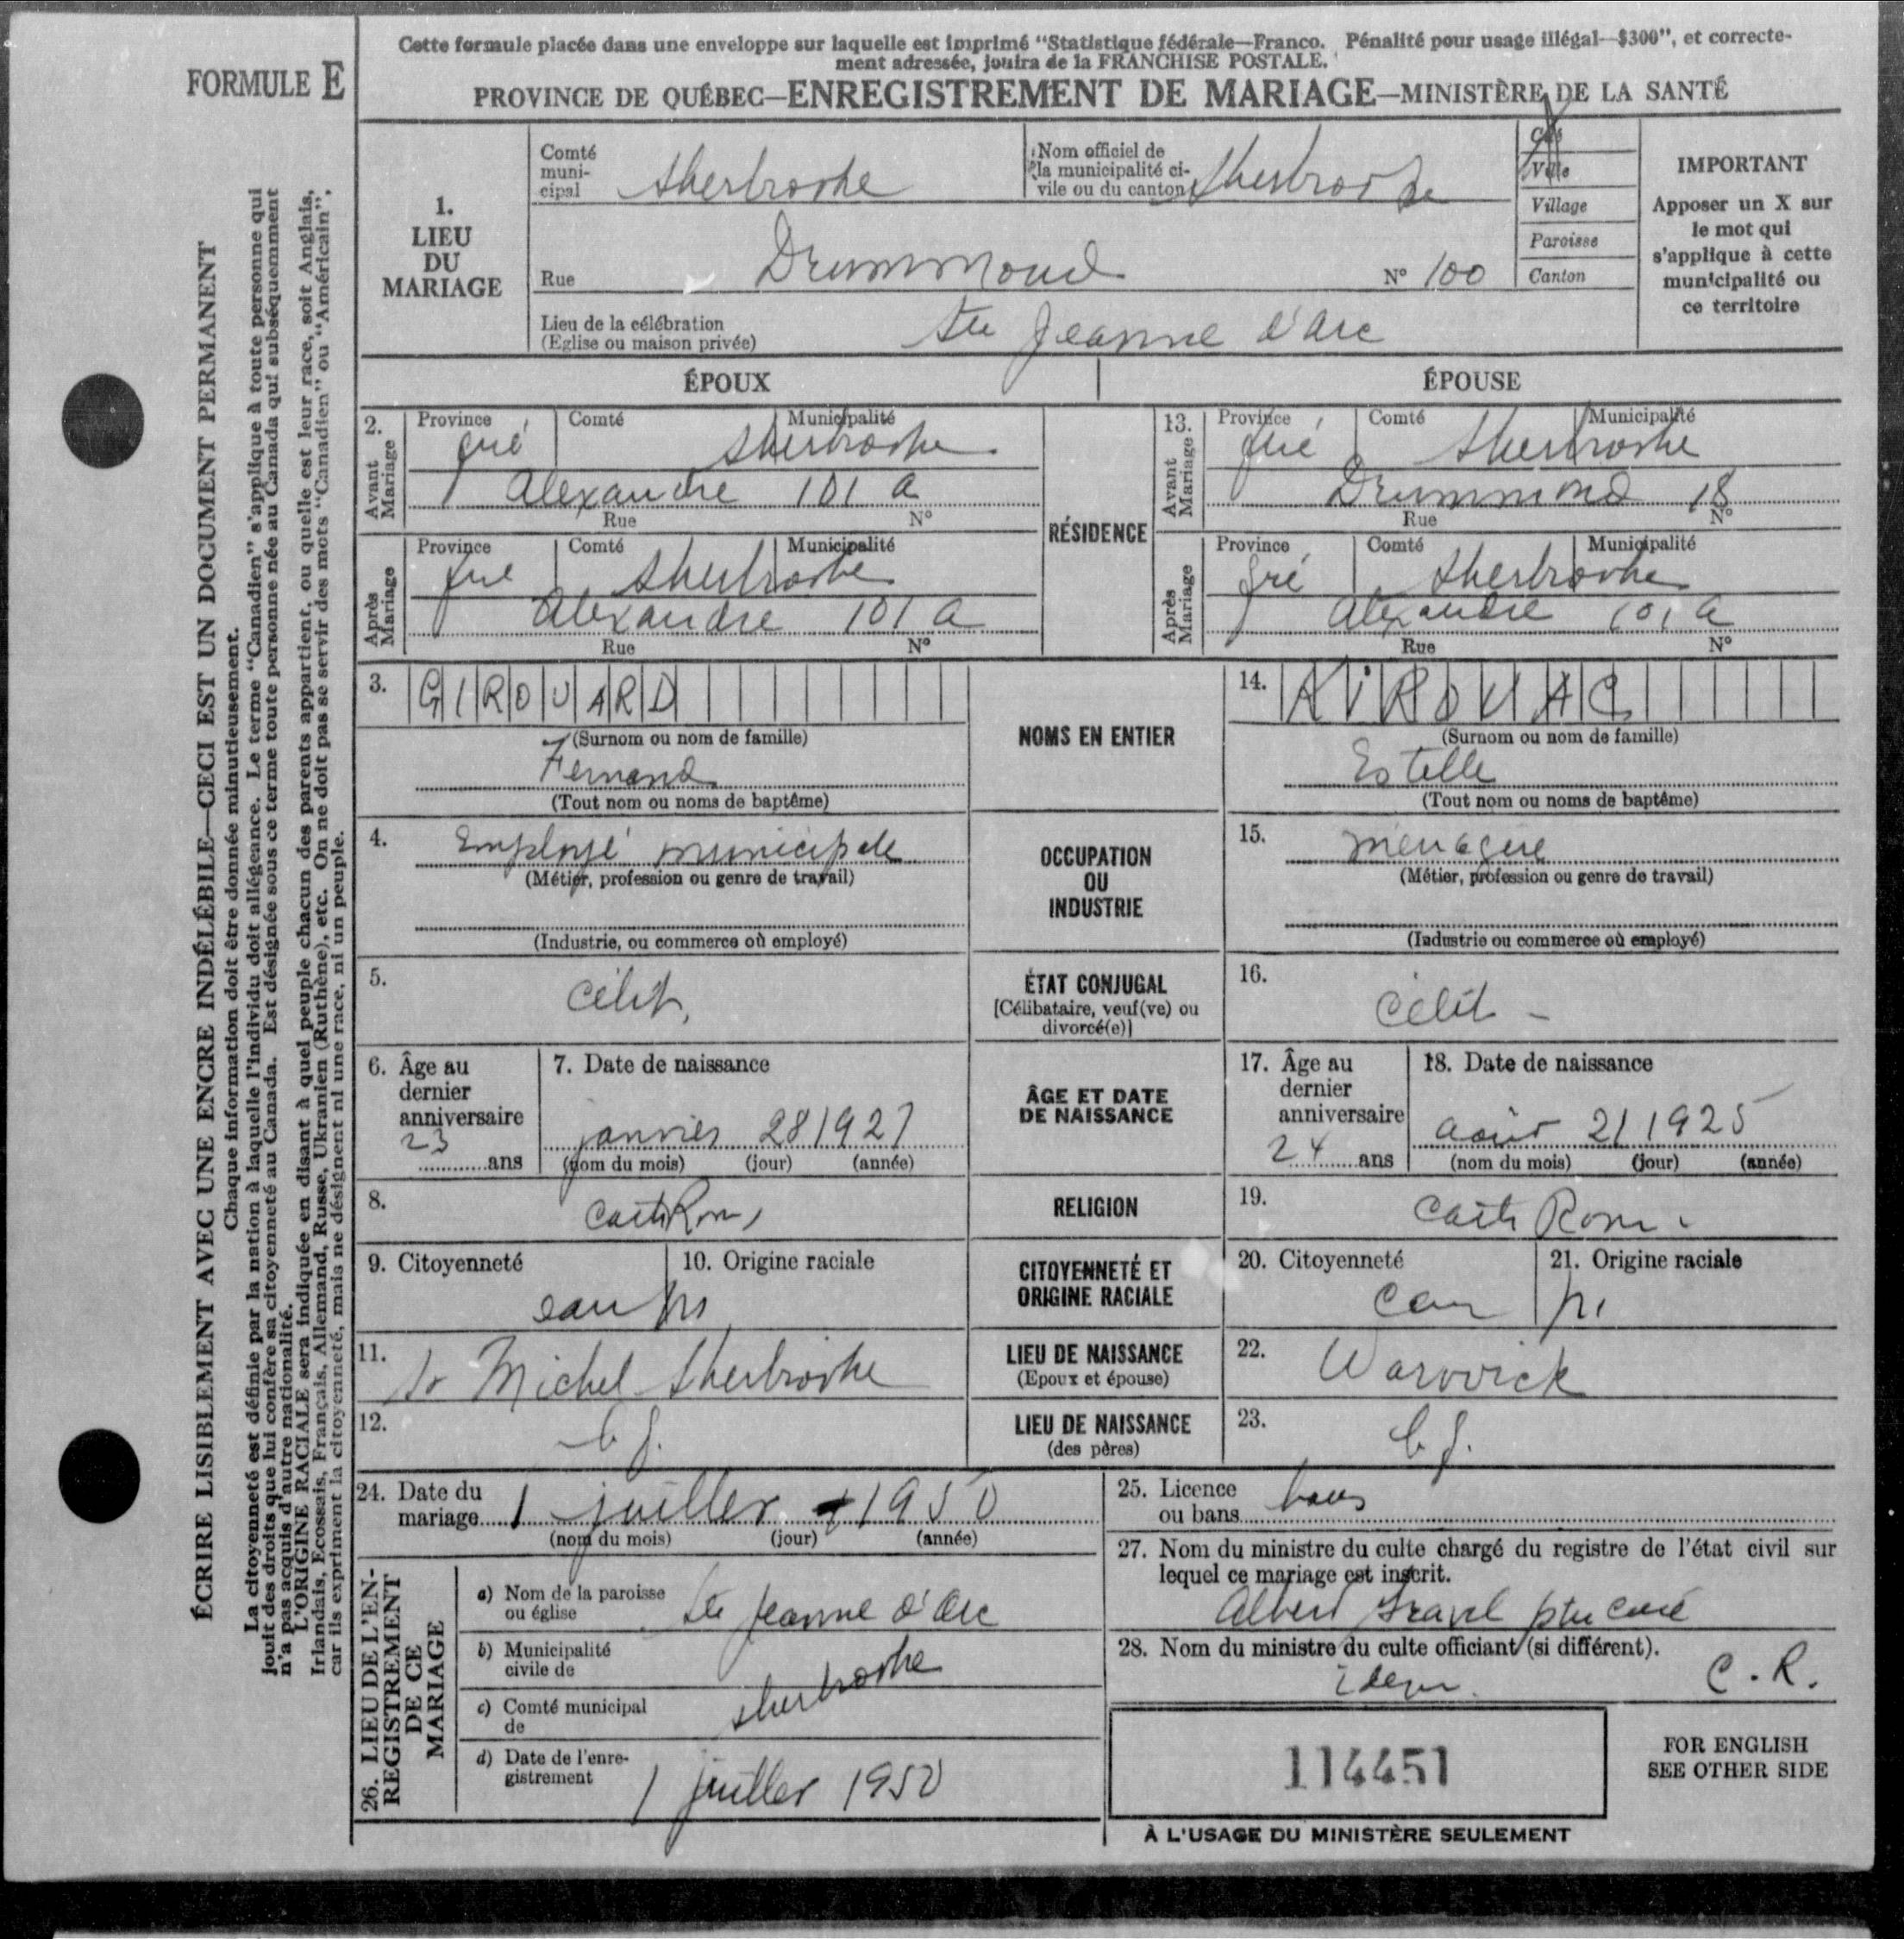 Cette formule placée dans une enveloppe sur laquelle est imprimé "Statistique fédérale—Franco. Pénalité pour usage illégal—$300", et correcte-
ment adressée, jouira de la FRANCHISE POSTALE.
FORMULE E
PROVINCE DE QUÉBEC—ENREGISTREMENT DE MARIAGE—MINISTÈRE DE LA SANTÉ
ÉCRIRE LISIBLEMENT AVEC UNE ENCRE INDÉLÉBILE—CECI EST UN DOCUMENT PERMANENT
Chaque information doit être donnée minutieusement.
La citoyenneté est définie par la nation à laquelle l'individu doit allégeance. Le terme "Canadien" s'applique à toute personne qui
jouit des droits que lui confère sa citoyenneté au Canada. Est désignée sous ce terme toute personne née au Canada qui subséquemment
n'a pas acquis d'autre nationalité.
L'ORIGINE RACIALE sera indiquée en disant à quel peuple chacun des parents appartient, ou quelle est leur race, soit Anglais,
Irlandais, Ecossais, Français, Allemand, Russe, Ukranien (Ruthène), etc. On ne doit pas se servir des mots "Canadien" ou "Américain",
car ils expriment la citoyenneté, mais ne désignent ni une race, ni un peuple.
1.
LIEU
DU
MARIAGE
Comté
muni-
cipal Sherbrooke
Nom officiel de
la municipalité ci-
vile ou du canton Sherbrooke
Cité
Ville
Village
Paroisse
Canton
IMPORTANT
Apposer un X sur
le mot qui
s'applique à cette
municipalité ou
ce territoire
Rue Drummond N° 100
Lieu de la célébration
(Eglise ou maison privée) Ste Jeanne d'Arc
ÉPOUX
ÉPOUSE
2. Avant Mariage
Province Comté Municipalité
qué Sherbrooke
Alexandre 101 a
Rue N°
Après Mariage
Province Comté Municipalité
que Sherbrooke
Alexandre 101 a
Rue N°
RÉSIDENCE
13. Avant Mariage
Province Comté Municipalité
qué Sherbrooke
Drummond 18
Rue N°
Après Mariage
Province Comté Municipalité
qué Sherbrooke
Alexandre 101 a
Rue N°
3. GIROUARD
(Surnom ou nom de famille)
Fernand
(Tout nom ou noms de baptême)
NOMS EN ENTIER
14. KIROUAC
(Surnom ou nom de famille)
Estelle
(Tout nom ou noms de baptême)
4. Employé municipale
(Métier, profession ou genre de travail)
(Industrie, ou commerce où employé)
OCCUPATION
OU
INDUSTRIE
15. menagère
(Métier, profession ou genre de travail)
(Industrie ou commerce où employé)
5. Célib.
ÉTAT CONJUGAL
[Célibataire, veuf(ve) ou
divorcé(e)]
16. Célib -
6. Âge au
dernier
anniversaire
23 ans
7. Date de naissance
janvier 28 1927
(nom du mois) (jour) (année)
ÂGE ET DATE
DE NAISSANCE
17. Âge au
dernier
anniversaire
24 ans
18. Date de naissance
août 21 1925
(nom du mois) (jour) (année)
8. Cath Rom.
RELIGION
19. Cath Rom.
9. Citoyenneté
can
10. Origine raciale
CITOYENNETÉ ET
ORIGINE RACIALE
20. Citoyenneté
Can
21. Origine raciale
11. St Michel Sherbrooke
LIEU DE NAISSANCE
(Epoux et épouse)
22. Warwick
12.
LIEU DE NAISSANCE
(des pères)
23.
24. Date du
mariage 1 juillet 1950
(nom du mois) (jour) (année)
25. Licence
ou bans bans
26. LIEU DE L'EN-
REGISTREMENT
DE CE
MARIAGE
a) Nom de la paroisse
ou église Ste Jeanne d'Arc
b) Municipalité
civile de
c) Comté municipal
de Sherbrooke
d) Date de l'enre-
gistrement 1 juillet 1950
27. Nom du ministre du culte chargé du registre de l'état civil sur
lequel ce mariage est inscrit.
Albert Gravel ptre curé
28. Nom du ministre du culte officiant (si différent).
idem. C. R.
114451
À L'USAGE DU MINISTÈRE SEULEMENT
FOR ENGLISH
SEE OTHER SIDE